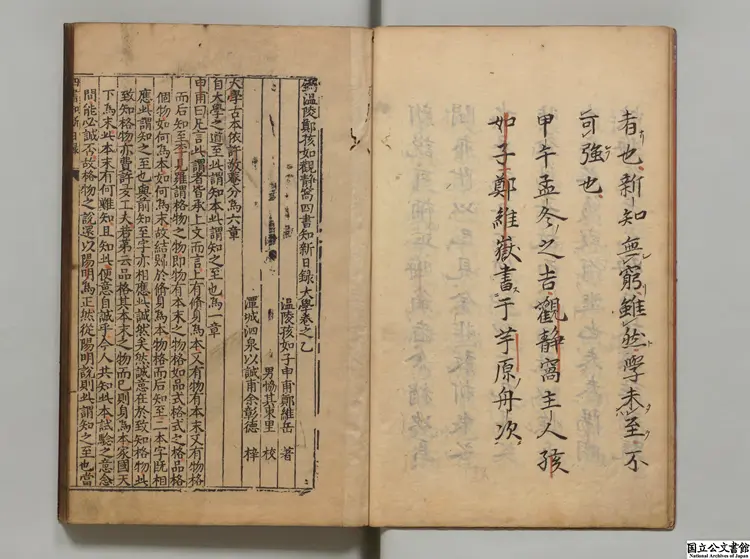 者也新知無窮雖然學未至不
可強也
甲午孟冬之吉觀靜窩主人孩
如子鄭維嶽書于芋原舟次
溫陵鄭孩如觀靜窩四書知新日錄大學卷之乙
溫陵孩如子申甫鄭維岳 著
男惕其東里 校
潭城泗泉以誠甫余彰德 梓
大學古本依許敬菴分爲六章
自大學之道至此謂知本此謂知之至也爲一章
申甫曰凡言此謂者皆承上文而言上有修身爲本又有物有本末又有物格
而后知至李見羅謂格物之物即物有本末之物格如品式格式之格品格
個物如何爲本如何爲末故結歸於修身爲本物格而后知至二本字旣相
應此謂知之至也與前知至字亦相應此誠然矣然誠意在於致知格物此
致知格物亦費許多工夫若第云品格其本末之物而已則身爲本家國天
下爲末此本末有何難知且知此便意自誠乎今人共知此本試驗之意念
間能必誠不故格物之說還以陽明爲正然從陽明說則此謂知之至也當
四書知新日錄
国立公文書館
National Archives of Japan